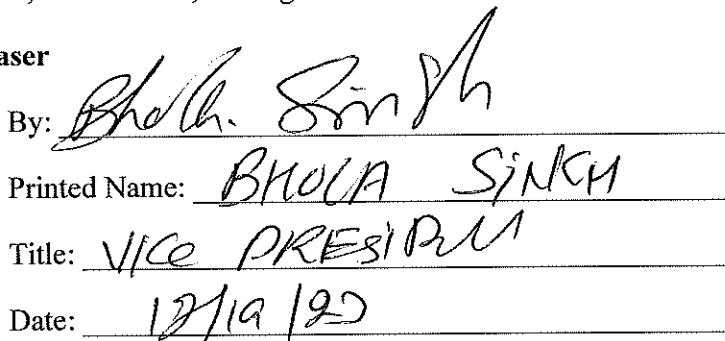 aser
By: Bhola Singh
Printed Name: BHOLA SINGH
Title: Vice PRESIDENT
Date: 12/19/